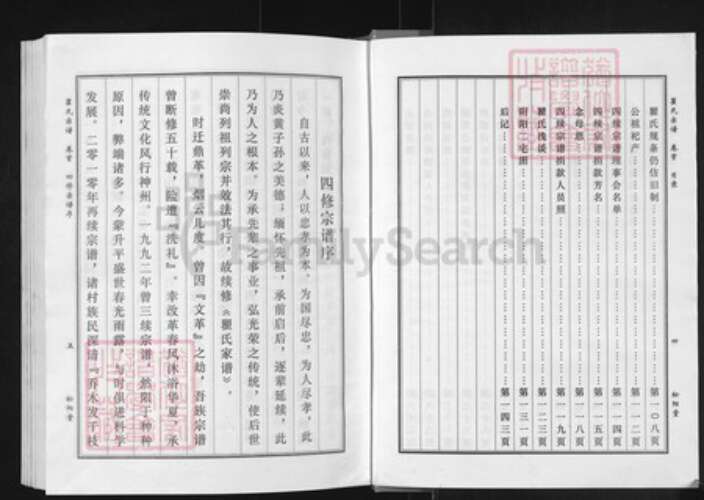 瞿氏规条仍依旧制……第一〇八页
公积祀产……第一一二页
四续宗谱理事会名单……第一一四页
四续宗谱捐款芳名……第一一五页
念母恩……第一一八页
四续宗谱捐款人员照……第一一九页
瞿氏浅谈……第一二三页
阴阳二宅图……第一三一页
后记……第一四三页
瞿氏宗谱 卷首 目录
四
松阳堂
四修宗谱序
自古以来，人以忠孝为本。为国尽忠，为人尽孝，此
乃炎黄子孙之美德；缅怀先祖，承前启后，逐辈延续，此
乃为人之根本。为承先辈之事业，弘光荣之传统，使后世
崇尚列祖列宗并效法其行，故续修《瞿氏家谱》。
时迁鼎革，烟云几度。曾因『文革』之劫，吾族宗谱
曾断修五十载，险遭『洗礼』。幸改革春风沐浴华夏，承
传统文化风行神州。一九九二年曾三续宗谱，然限于种种
原因，弊端诸多。今蒙升平盛世春光雨露，与时俱进科学
发展。二零一零年再续宗谱，诸村族民深谙『乔木发千枝
瞿氏宗谱 卷首 四修宗谱序
五
松阳堂
FamilySearch